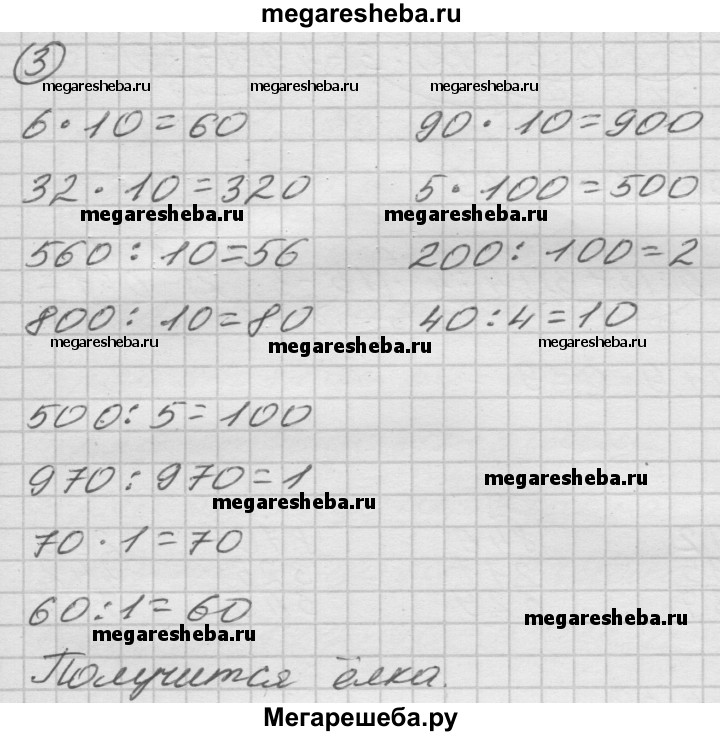 megaresheba.ru
3
megaresheba.ru megaresheba.ru megaresheba.ru
6 · 10 = 60 90 · 10 = 900
32 · 10 = 320 5 · 100 = 500
megaresheba.ru megaresheba.ru
560 : 10 = 56 200 : 100 = 2
800 : 10 = 80 40 : 4 = 10
megaresheba.ru megaresheba.ru megaresheba.ru
500 : 5 = 100
970 : 970 = 1
megaresheba.ru megaresheba.ru
70 · 1 = 70
60 : 1 = 60
megaresheba.ru megaresheba.ru
Получится ёлка.
Мегарешеба.ру